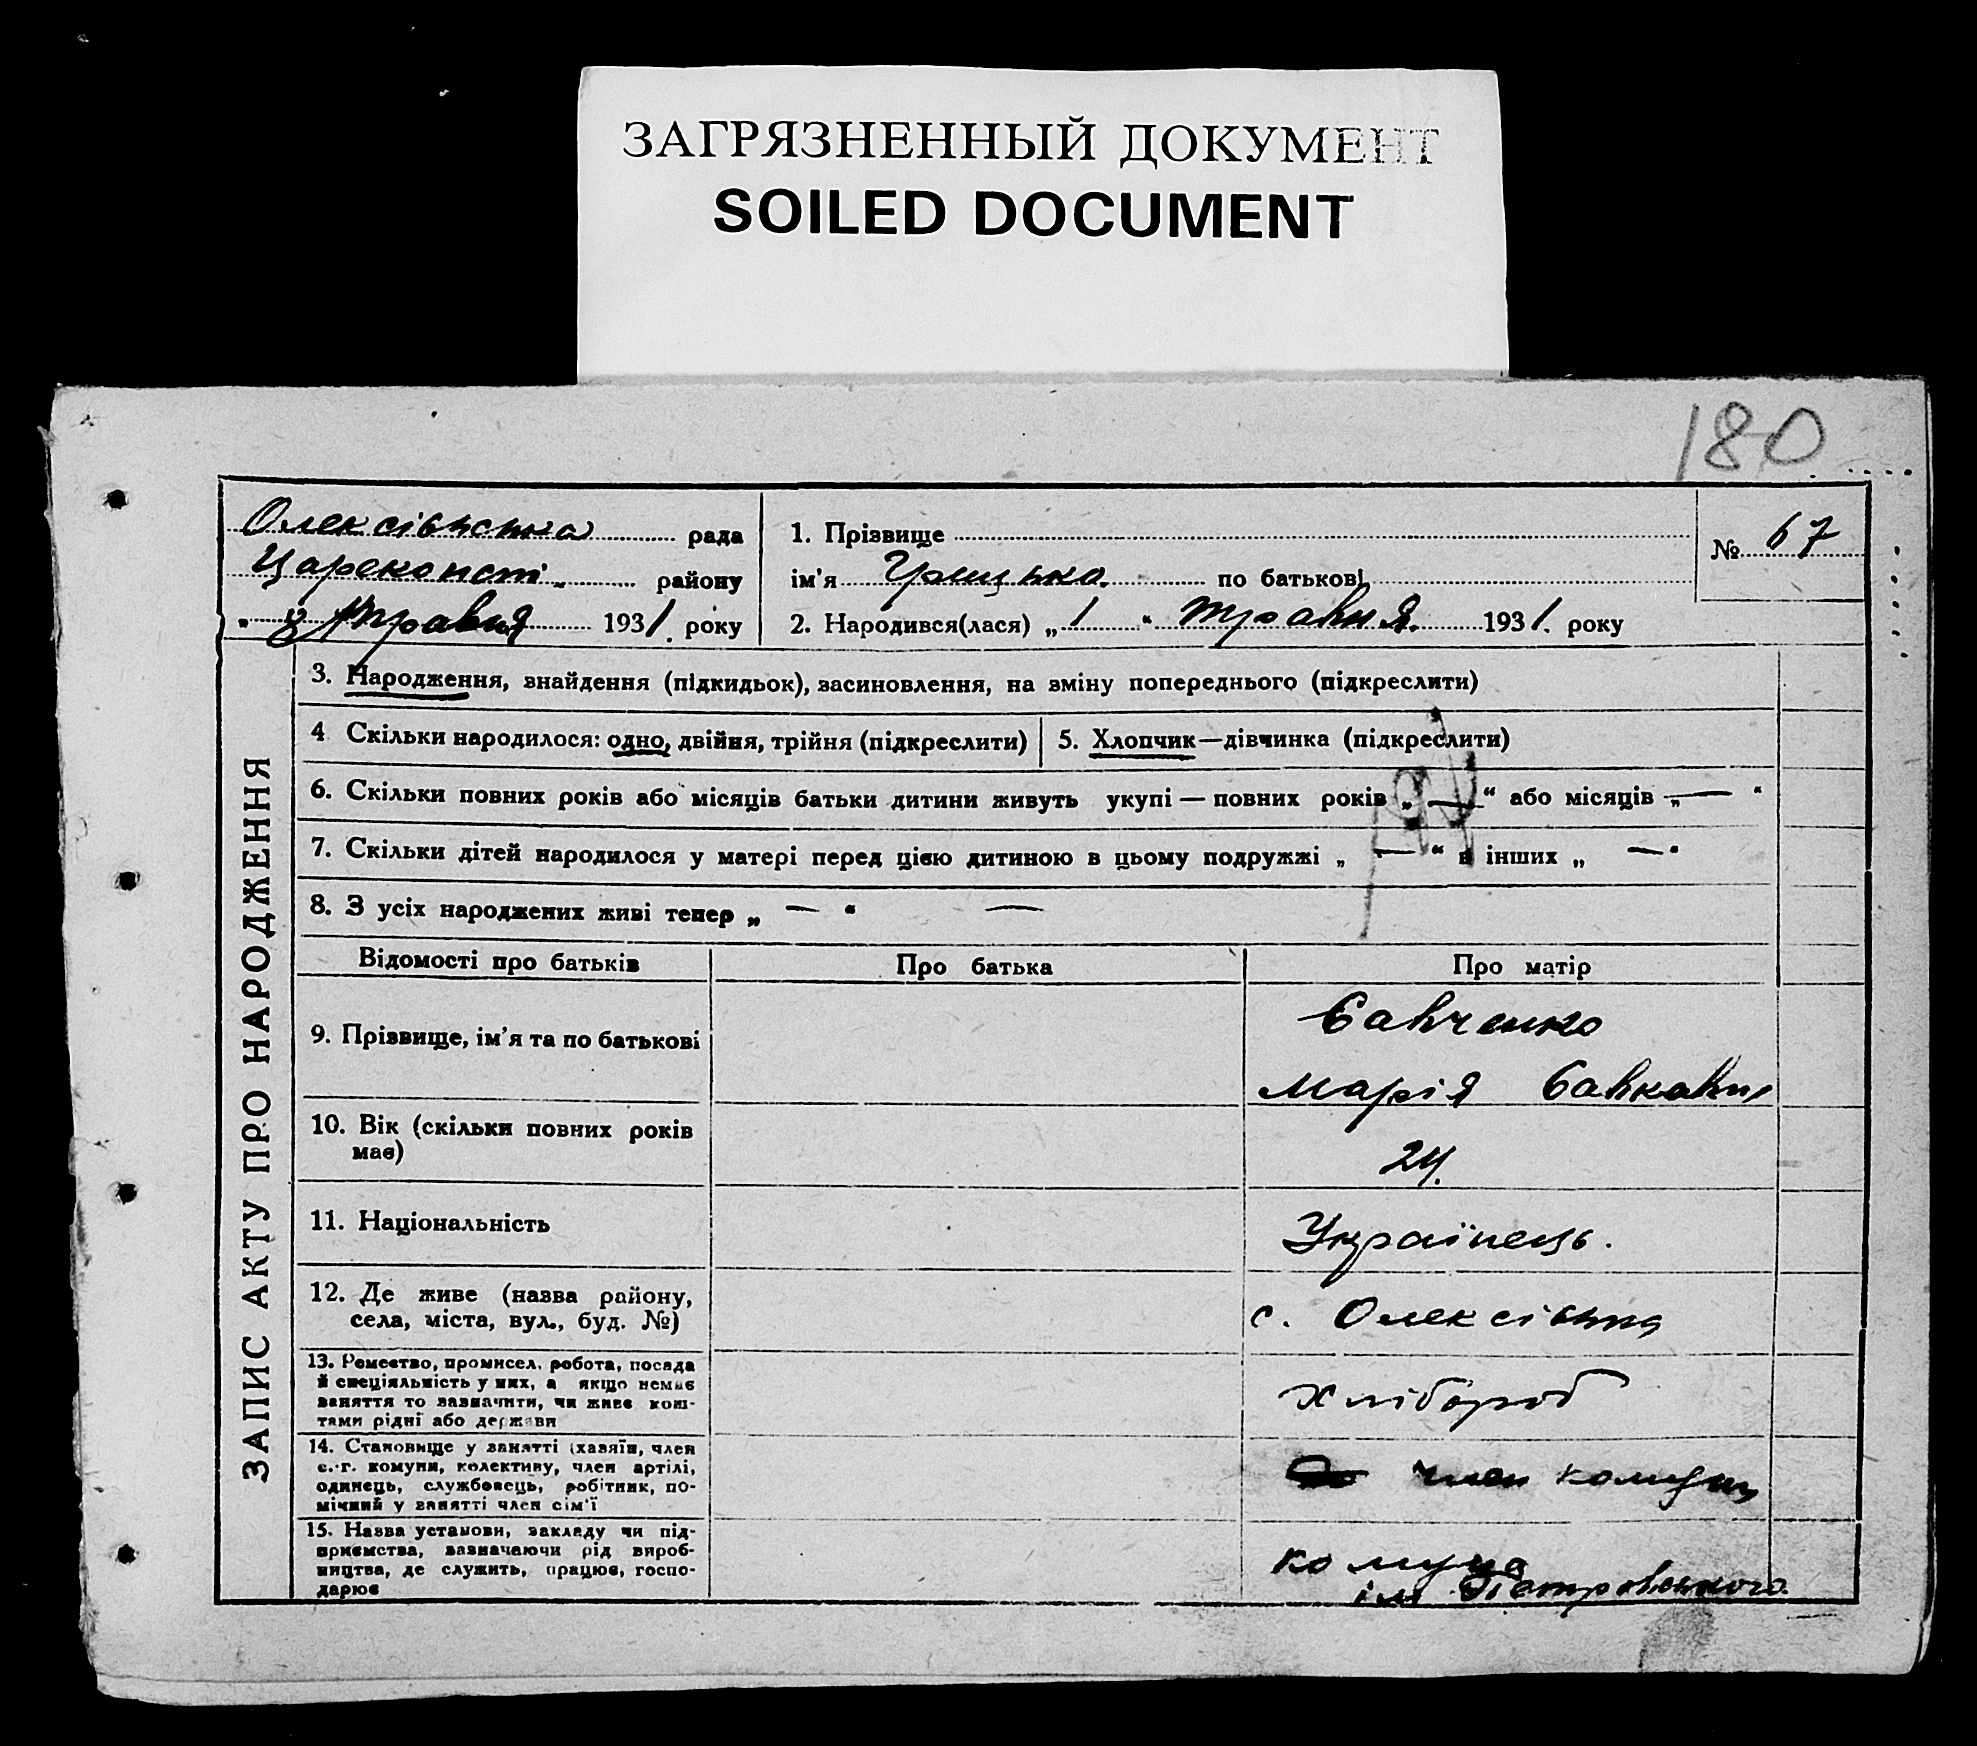 ЗАГРЯЗНЕННЫЙ ДОКУМЕНТ
SOILED DOCUMENT
180
Олексівська рада
Царекопст. району
" 8 травня 1931. року
1. Прізвище
ім'я Грицько. по батькові
2. Народився(лася) „ 1 " травня. 1931. року
№ 67
ЗАПИС АКТУ ПРО НАРОДЖЕННЯ
3. Народження, знайдення (підкидьок), засиновлення, на зміну попереднього (підкреслити)
4 Скільки народилося: одно, двійня, трійня (підкреслити)
5. Хлопчик—дівчинка (підкреслити)
6. Скільки повних років або місяців батьки дитини живуть укупі — повних років „ — " або місяців „ — "
7. Скільки дітей народилося у матері перед цією дитиною в цьому подружжі „ — " в інших „ — "
8. З усіх народжених живі тепер „ — " —
Відомості про батьків
Про батька
Про матір
9. Прізвище, ім'я та по батькові
Савченко
Марія
10. Вік (скільки повних років
має)
24.
11. Національність
Українець.
12. Де живе (назва району,
села, міста, вул., буд. №)
с. Олексівка
13. Ремество, промисел, робота, посада
й спеціяльність у них, а якщо немає
заняття то зазначити, чи живе кош-
тами рідні або держави
Хлібороб
14. Становище у занятті (хазяїн, член
с.-г. комуни, колективу, член артілі,
одинець, службовець, робітник, по-
мічний у занятті член сім'ї
член комуни
15. Назва установи, закладу чи під-
приємства, зазначаючи рід вироб-
ництва, де служить, працює, госпо-
дарює
комуна
ім Петровського